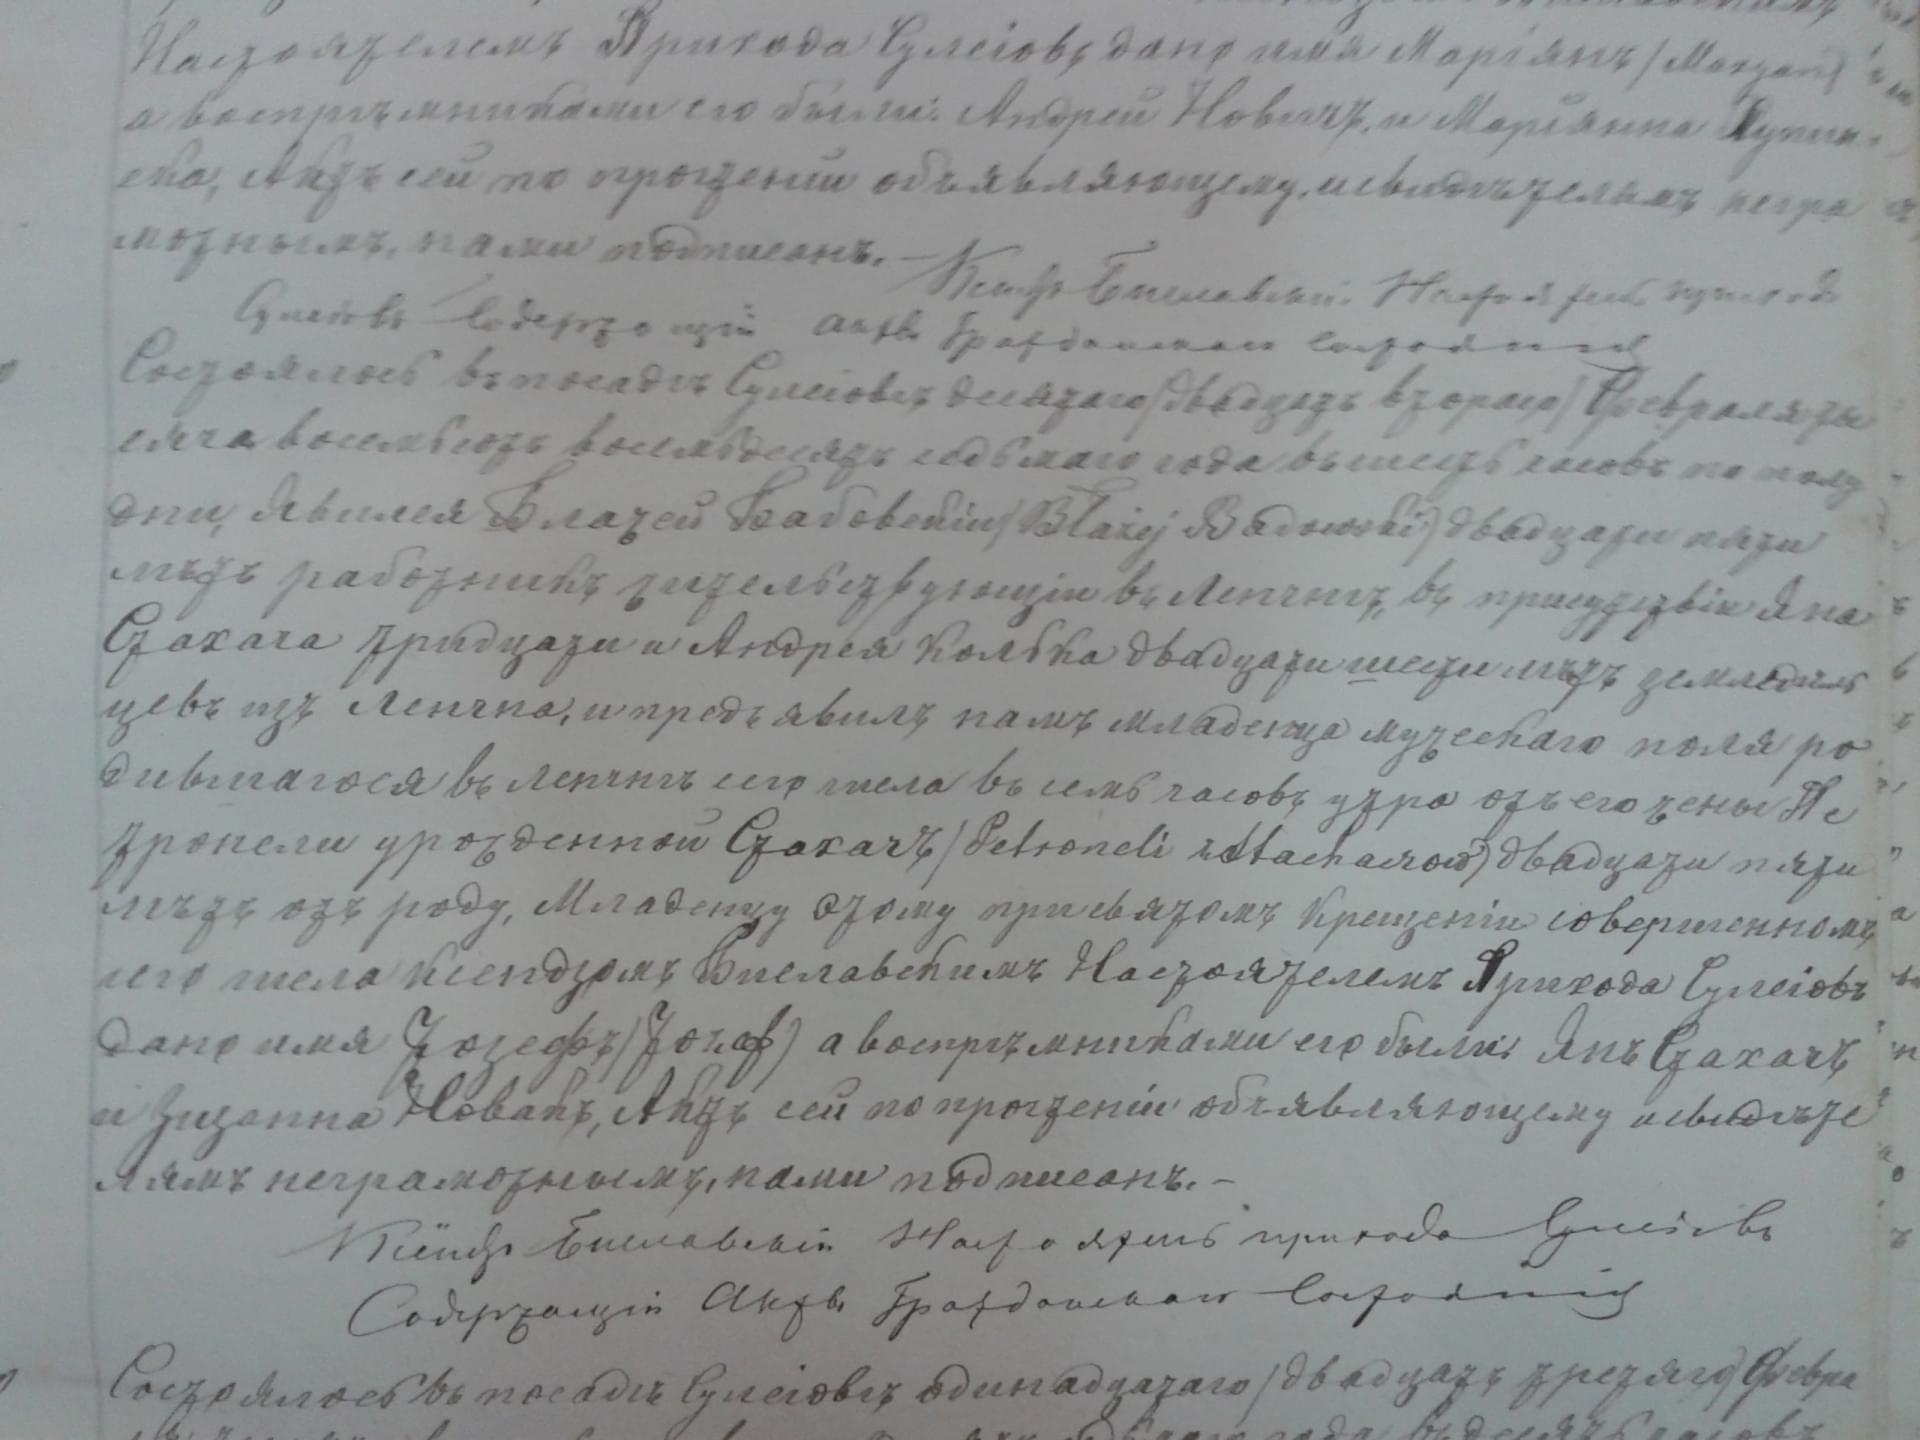 Настоятелемъ Прихода Сулеіовъ дано имя Маріянъ /Maryan/
а воспріѣмниками его были: Андрей Новичъ, и Маріянна
Актъ сей по прочтеніи объявляющему, и свидѣтелямъ негра
мотнымъ, нами подписанъ. —
Ксендзъ Биелавскій Настоятель прихода
Сулеіовъ Содержащій Акты Гражданскаго Состоянія
Состоялось въ посадѣ Сулеіовѣ, десятаго /двадцать втораго/ Февраля ты
сяча восемьсотъ восемьдесятъ седьмаго года въ шесть часовъ по полу
дни, Явился Блажей Бадовскій /Błażej Badowski/ двадцати пяти
лѣтъ работникъ жительствующій въ Ленчнѣ, въ присутствіи Яна
Стахача тридцати и Андрея Колбка двадцати шести лѣтъ земледѣль
цевъ изъ Ленчна, и предъявилъ намъ младенца мужескаго пола ро
дившагося въ Ленчнѣ сего числа въ семь часовъ утра отъ его жены Пе
тронели урожденной Стахачъ /Petroneli z Stachaczów/ двадцати пяти
лѣтъ отъ роду, Младенцу этому при святомъ крещеніи совершенномъ
сего числа Ксендзомъ Биелавскимъ Настоятелемъ Прихода Сулеіовъ
дано имя Іозефъ /Józef/ а воспріѣмниками его были: Янъ Стахачъ
и Зузанна Новакъ, Актъ сей по прочтеніи объявляющему и свидѣте
лямъ неграмотнымъ, нами подписанъ. —
Ксендзъ Биелавскій Настоятель прихода Сулеіовъ
Содержащій Акты Гражданскаго Состоянія
Состоялось въ посадѣ Сулеіовѣ, одинадцатаго /двадцать третяго/ Февра
года въ десять часовъ